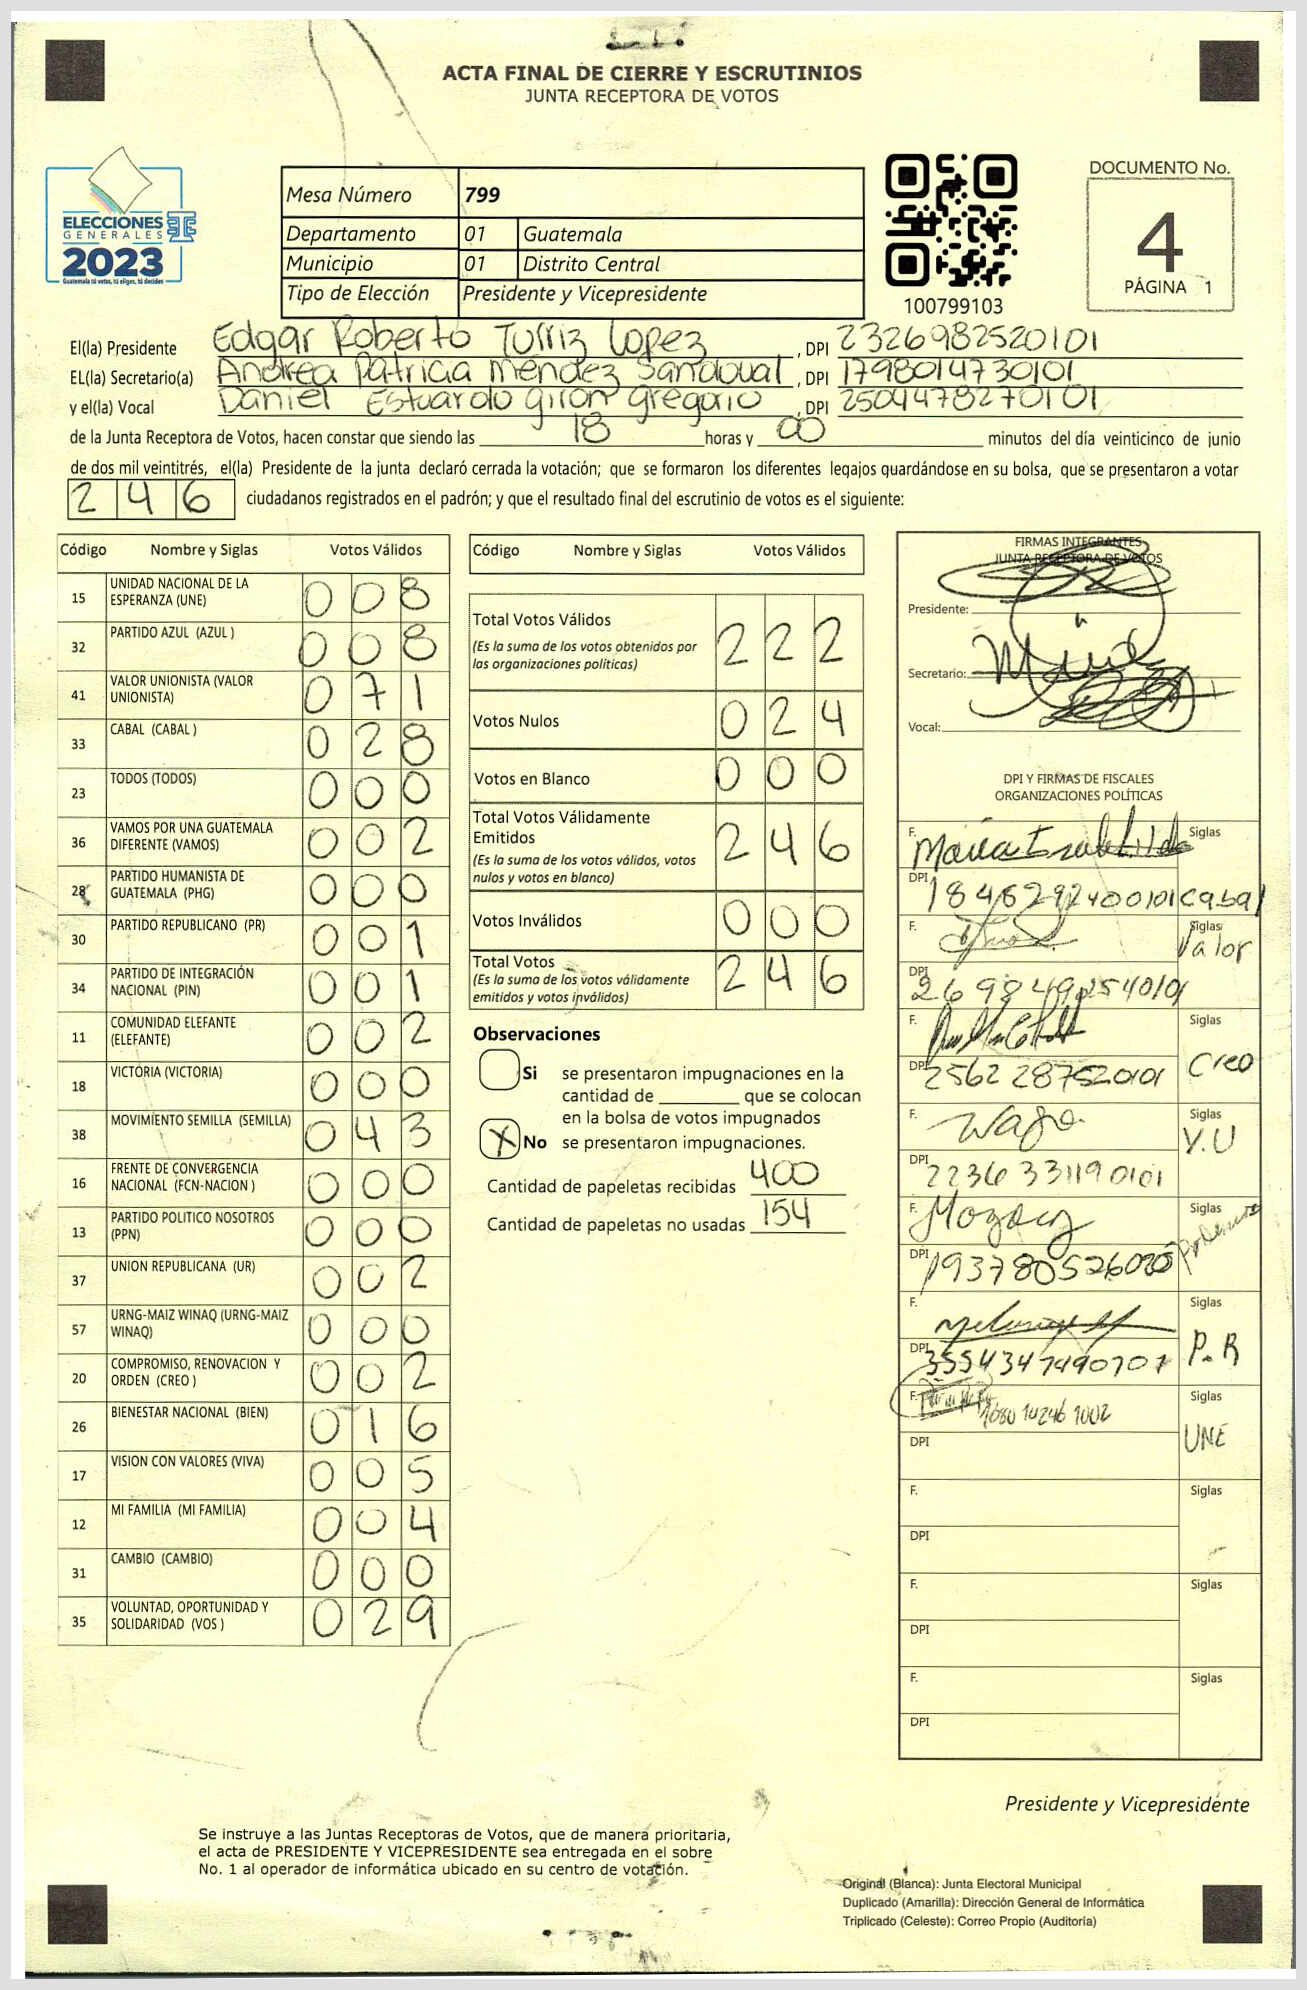 ACTA FINAL DE CIERRE Y ESCRUTINIOS
JUNTA RECEPTORA DE VOTOS
ELECCIONES
GENERALES
2023
Guatemala tú votas, tú eliges, tú decides
Mesa Número 799
Departamento 01 Guatemala
Municipio 01 Distrito Central
Tipo de Elección Presidente y Vicepresidente
100799103
DOCUMENTO No.
4
PÁGINA 1
El(la) Presidente Edgar Roberto Turriz Lopez, DPI 2326982520101
EL(la) Secretario(a) Andrea Patricia Méndez Sandoval, DPI 1798014730101
y el(la) Vocal Daniel Estuardo Giron Gregorio, DPI 2504478270101
de la Junta Receptora de Votos, hacen constar que siendo las 18 horas y 00 minutos del día veinticinco de junio
de dos mil veintitrés, el(la) Presidente de la junta declaró cerrada la votación; que se formaron los diferentes legajos guardándose en su bolsa, que se presentaron a votar
246 ciudadanos registrados en el padrón; y que el resultado final del escrutinio de votos es el siguiente:
Código Nombre y Siglas Votos Válidos
15 UNIDAD NACIONAL DE LA ESPERANZA (UNE) 008
32 PARTIDO AZUL (AZUL ) 008
41 VALOR UNIONISTA (VALOR UNIONISTA) 071
33 CABAL (CABAL ) 028
23 TODOS (TODOS) 000
36 VAMOS POR UNA GUATEMALA DIFERENTE (VAMOS) 002
28 PARTIDO HUMANISTA DE GUATEMALA (PHG) 000
30 PARTIDO REPUBLICANO (PR) 001
34 PARTIDO DE INTEGRACIÓN NACIONAL (PIN) 001
11 COMUNIDAD ELEFANTE (ELEFANTE) 002
18 VICTORIA (VICTORIA) 000
38 MOVIMIENTO SEMILLA (SEMILLA) 043
16 FRENTE DE CONVERGENCIA NACIONAL (FCN-NACION ) 000
13 PARTIDO POLITICO NOSOTROS (PPN) 000
37 UNION REPUBLICANA (UR) 002
57 URNG-MAIZ WINAQ (URNG-MAIZ WINAQ) 000
20 COMPROMISO, RENOVACION Y ORDEN (CREO ) 002
26 BIENESTAR NACIONAL (BIEN) 016
17 VISION CON VALORES (VIVA) 005
12 MI FAMILIA (MI FAMILIA) 004
31 CAMBIO (CAMBIO) 000
35 VOLUNTAD, OPORTUNIDAD Y SOLIDARIDAD (VOS ) 029
Código Nombre y Siglas Votos Válidos
Total Votos Válidos 222
(Es la suma de los votos obtenidos por
las organizaciones políticas)
Votos Nulos 024
Votos en Blanco 000
Total Votos Válidamente
Emitidos 246
(Es la suma de los votos válidos, votos
nulos y votos en blanco)
Votos Inválidos 000
Total Votos 246
(Es la suma de los votos válidamente
emitidos y votos inválidos)
Observaciones
Si se presentaron impugnaciones en la
cantidad de ________ que se colocan
en la bolsa de votos impugnados
X No se presentaron impugnaciones.
Cantidad de papeletas recibidas 400
Cantidad de papeletas no usadas 154
FIRMAS INTEGRANTES
JUNTA RECEPTORA DE VOTOS
Presidente:
Secretario:
Vocal:
DPI Y FIRMAS DE FISCALES
ORGANIZACIONES POLÍTICAS
F. María Siglas
DPI 1846292400101 Cabal
F. Siglas Valor
DPI 26988492540101
F. Siglas
DPI 2562287520101 Creo
F. Siglas
DPI 2236331190101 Y.U
F. Siglas
DPI Podemos
F. Siglas
DPI 3554347490701 P.R
F. Siglas
DPI UNE
F. Siglas
DPI
F. Siglas
DPI
F. Siglas
DPI
Presidente y Vicepresidente
Se instruye a las Juntas Receptoras de Votos, que de manera prioritaria,
el acta de PRESIDENTE Y VICEPRESIDENTE sea entregada en el sobre
No. 1 al operador de informática ubicado en su centro de votación.
Original (Blanca): Junta Electoral Municipal
Duplicado (Amarilla): Dirección General de Informática
Triplicado (Celeste): Correo Propio (Auditoría)